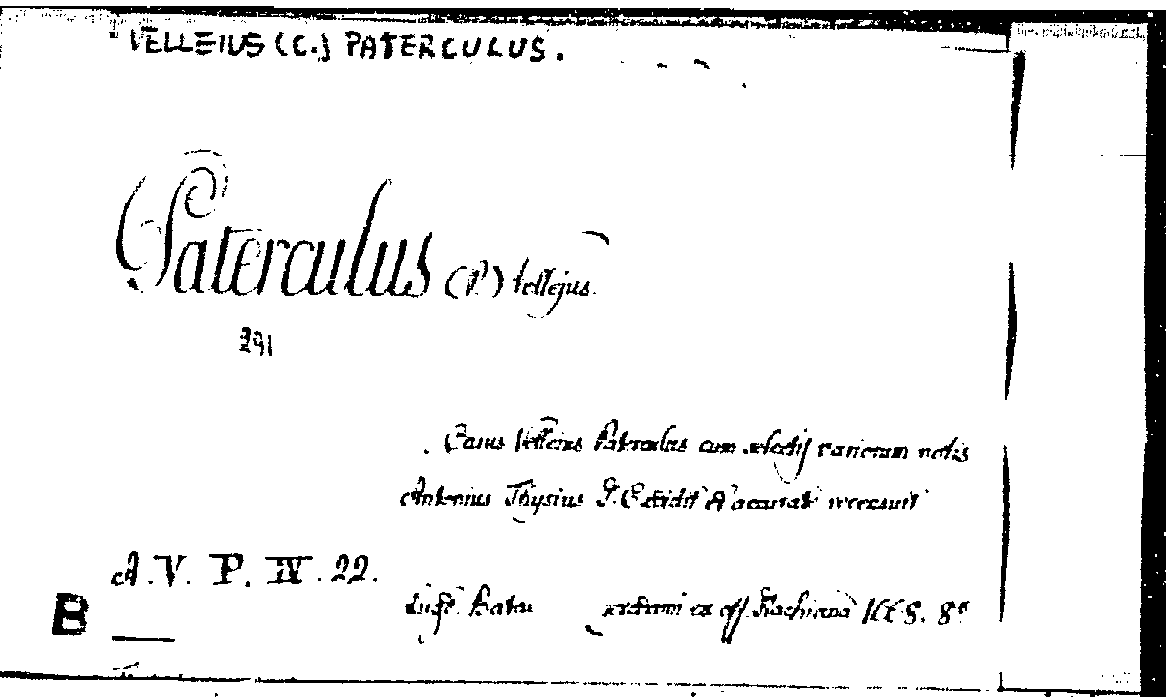 VELLEIUS (C.) PATERCULUS.
Paterculus (P.) Vellejus.
291
Caius Velleius Paterculus cum selectis variorum notis
Antonius Thysius J.C. edidit & accuratè recensuit
A.V. P. IV. 22.
B
Lugd. Batav ex off. Hackiana 1668. 8º